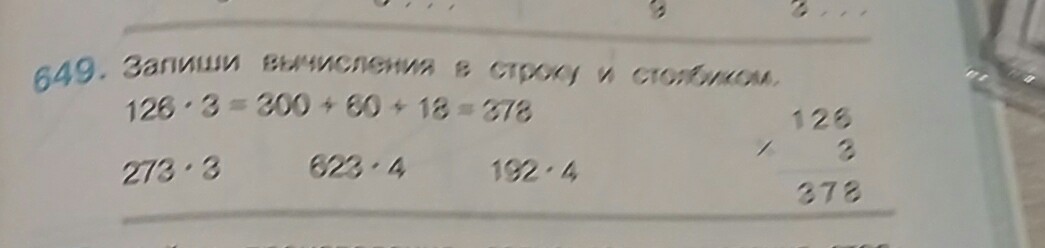 9 3 . . .
649. Запиши вычисления в строку и столбиком.
126 · 3 = 300 + 60 + 18 = 378
273 · 3 623 · 4 192 · 4
126
× 3
378